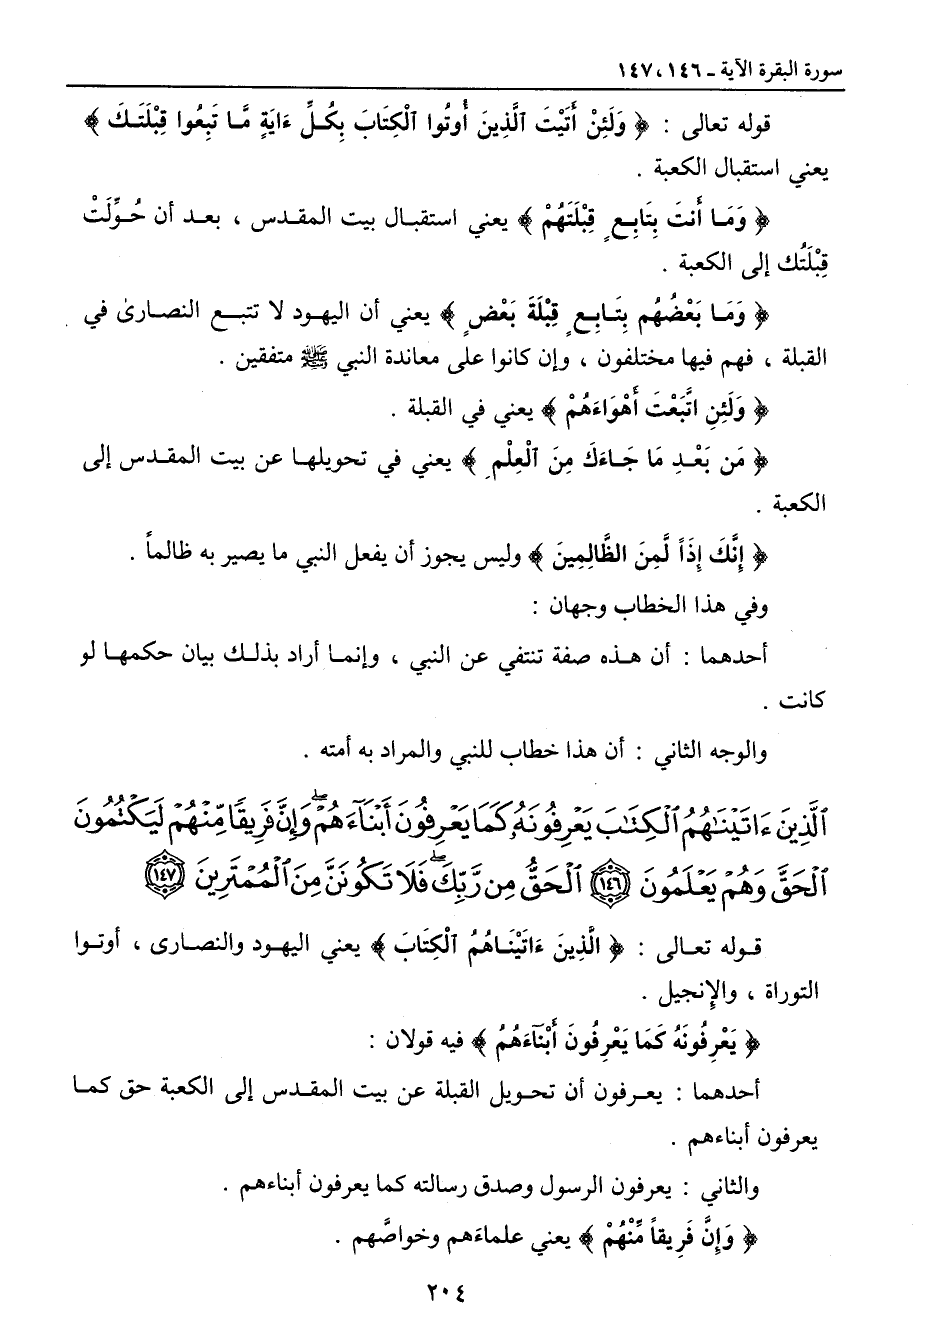 سورة البقرة الآية ـ ١٤٦ ، ١٤٧
قوله تعالى : ﴿ وَلَئِنْ أَتَيْتَ ٱلَّذِينَ أُوتُوا ٱلْكِتَابَ بِكُلِّ ءَايَةٍ مَّا تَبِعُوا قِبْلَتَكَ ﴾
يعني استقبال الكعبة .
﴿ وَمَا أَنتَ بِتَابِعٍ قِبْلَتَهُمْ ﴾ يعني استقبال بيت المقدس ، بعد أن حُوِّلَتْ
قِبْلَتُك إلى الكعبة .
﴿ وَمَا بَعْضُهُم بِتَابِعٍ قِبْلَةَ بَعْضٍ ﴾ يعني أن اليهود لا تتبع النصارىٰ في
القبلة ، فهم فيها مختلفون ، وإن كانوا على معاندة النبي ﷺ متفقين .
﴿ وَلَئِنِ اتَّبَعْتَ أَهْوَاءَهُمْ ﴾ يعني في القبلة .
﴿ مَن بَعْدِ مَا جَاءَكَ مِنَ ٱلْعِلْمِ ﴾ يعني في تحويلها عن بيت المقدس إلى
الكعبة .
﴿ إِنَّكَ إِذَاً لَّمِنَ الظَّالِمِينَ ﴾ وليس يجوز أن يفعل النبي ما يصير به ظالماً .
وفي هذا الخطاب وجهان :
أحدهما : أن هذه صفة تنتفي عن النبي ، وإنما أراد بذلك بيان حكمها لو
كانت .
والوجه الثاني : أن هذا خطاب للنبي والمراد به أمته .
ٱلَّذِينَ ءَاتَيْنَٰهُمُ ٱلْكِتَٰبَ يَعْرِفُونَهُۥ كَمَا يَعْرِفُونَ أَبْنَآءَهُمْۖ وَإِنَّ فَرِيقًا مِّنْهُمْ لَيَكْتُمُونَ
ٱلْحَقَّ وَهُمْ يَعْلَمُونَ ﴿١٤٦﴾ ٱلْحَقُّ مِن رَّبِّكَۖ فَلَا تَكُونَنَّ مِنَ ٱلْمُمْتَرِينَ ﴿١٤٧﴾
قوله تعالى : ﴿ الَّذِينَ ءَاتَيْنَاهُمُ ٱلْكِتَابَ ﴾ يعني اليهود والنصارى ، أوتوا
التوراة ، والإنجيل .
﴿ يَعْرِفُونَهُ كَمَا يَعْرِفُونَ أَبْنَآءَهُمُ ﴾ فيه قولان :
أحدهما : يعرفون أن تحويل القبلة عن بيت المقدس إلى الكعبة حق كما
يعرفون أبناءهم .
والثاني : يعرفون الرسول وصدق رسالته كما يعرفون أبناءهم .
﴿ وَإِنَّ فَرِيقاً مِّنْهُمْ ﴾ يعني علماءَهم وخواصَّهم .
٢٠٤